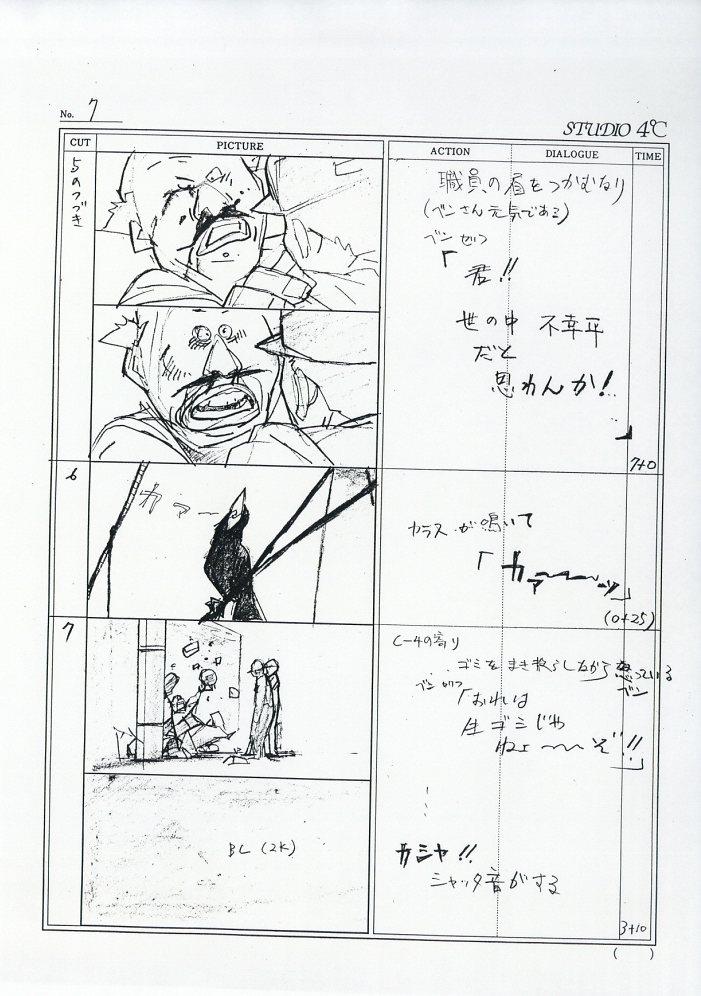 No. 7
STUDIO 4℃
CUT PICTURE ACTION DIALOGUE TIME
5のつづき
職員の肩をつかむなり
(ベンさん元気である)
ベン
「君!!
世の中 不幸平
だと
思わんか!
」
7+0
6
カァー
カラスが鳴いて
「カァーーーッ」
(0+25)
7
C-4の寄り
ゴミをまき散らしながら
ベン
「おれは
生ゴミじゃ
ねェ〜〜ぞ!!
」
BL (2K)
カシャ!!
シャッタ音がする
3+10
( )